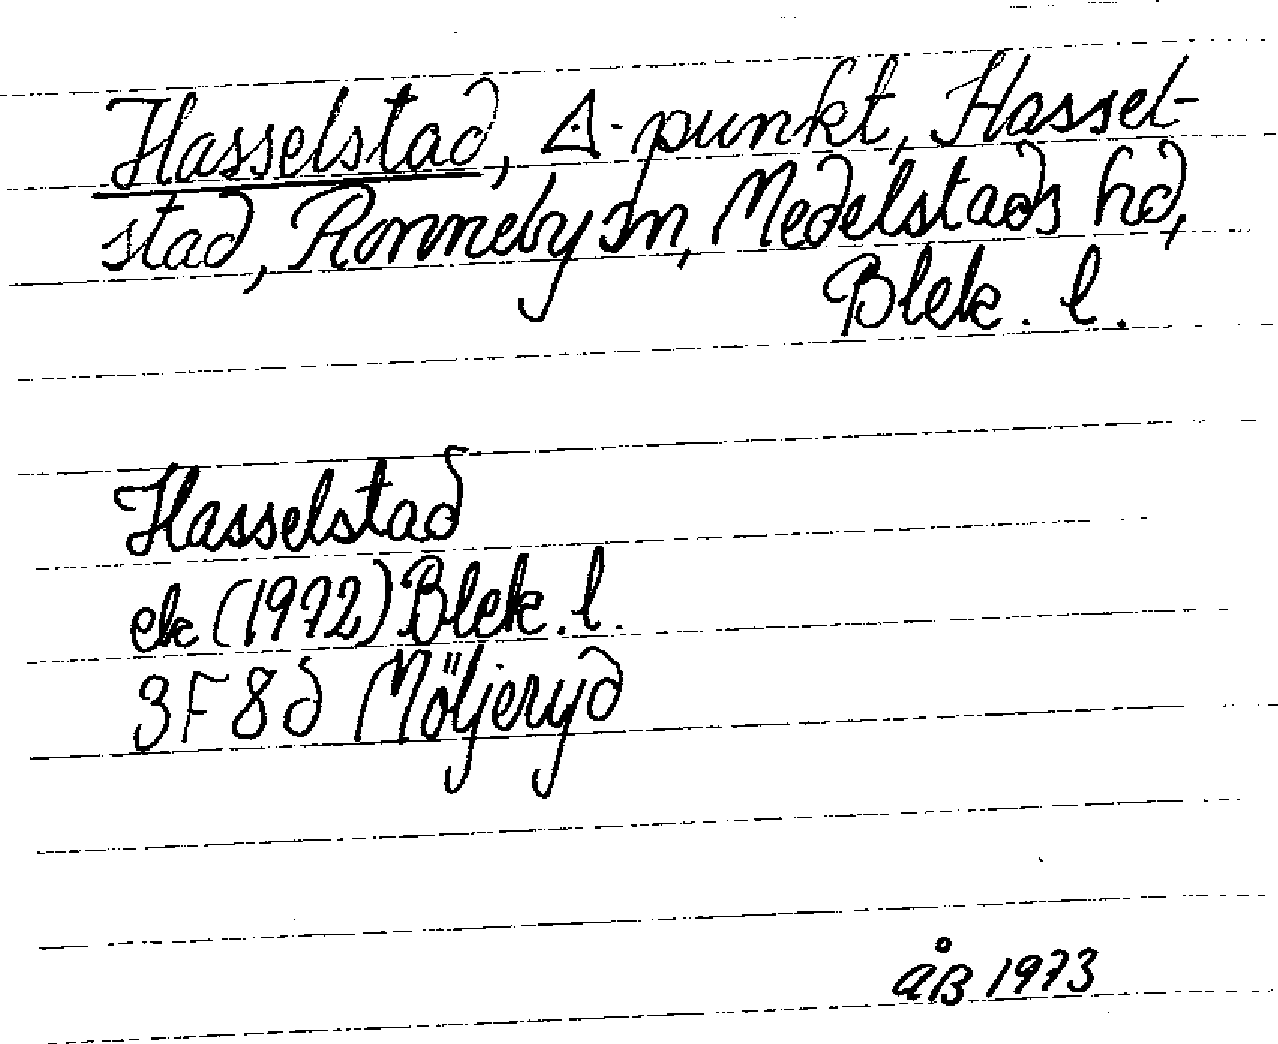 Hasselstad, △-punkt, Hassel-
stad, Ronneby sn, Medelstads hd,
Blek. l.
Hasselstad
ek (1972) Blek. l.
3F 8d Möljeryd
åB 1973